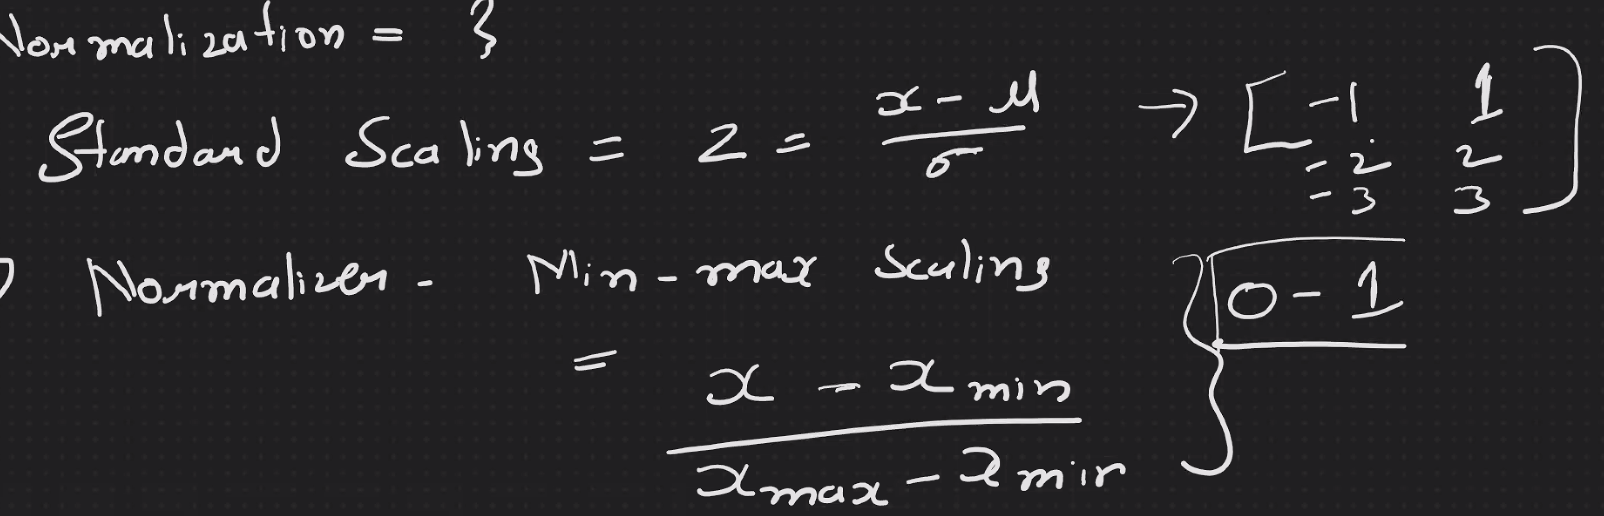 Normalization = }
Standard Scaling = Z = x - μ / σ → [ -1 1
-2 2
-3 3 ]
Normalizer - Min-max Scaling } 0 - 1
= x - x min / x max - x min